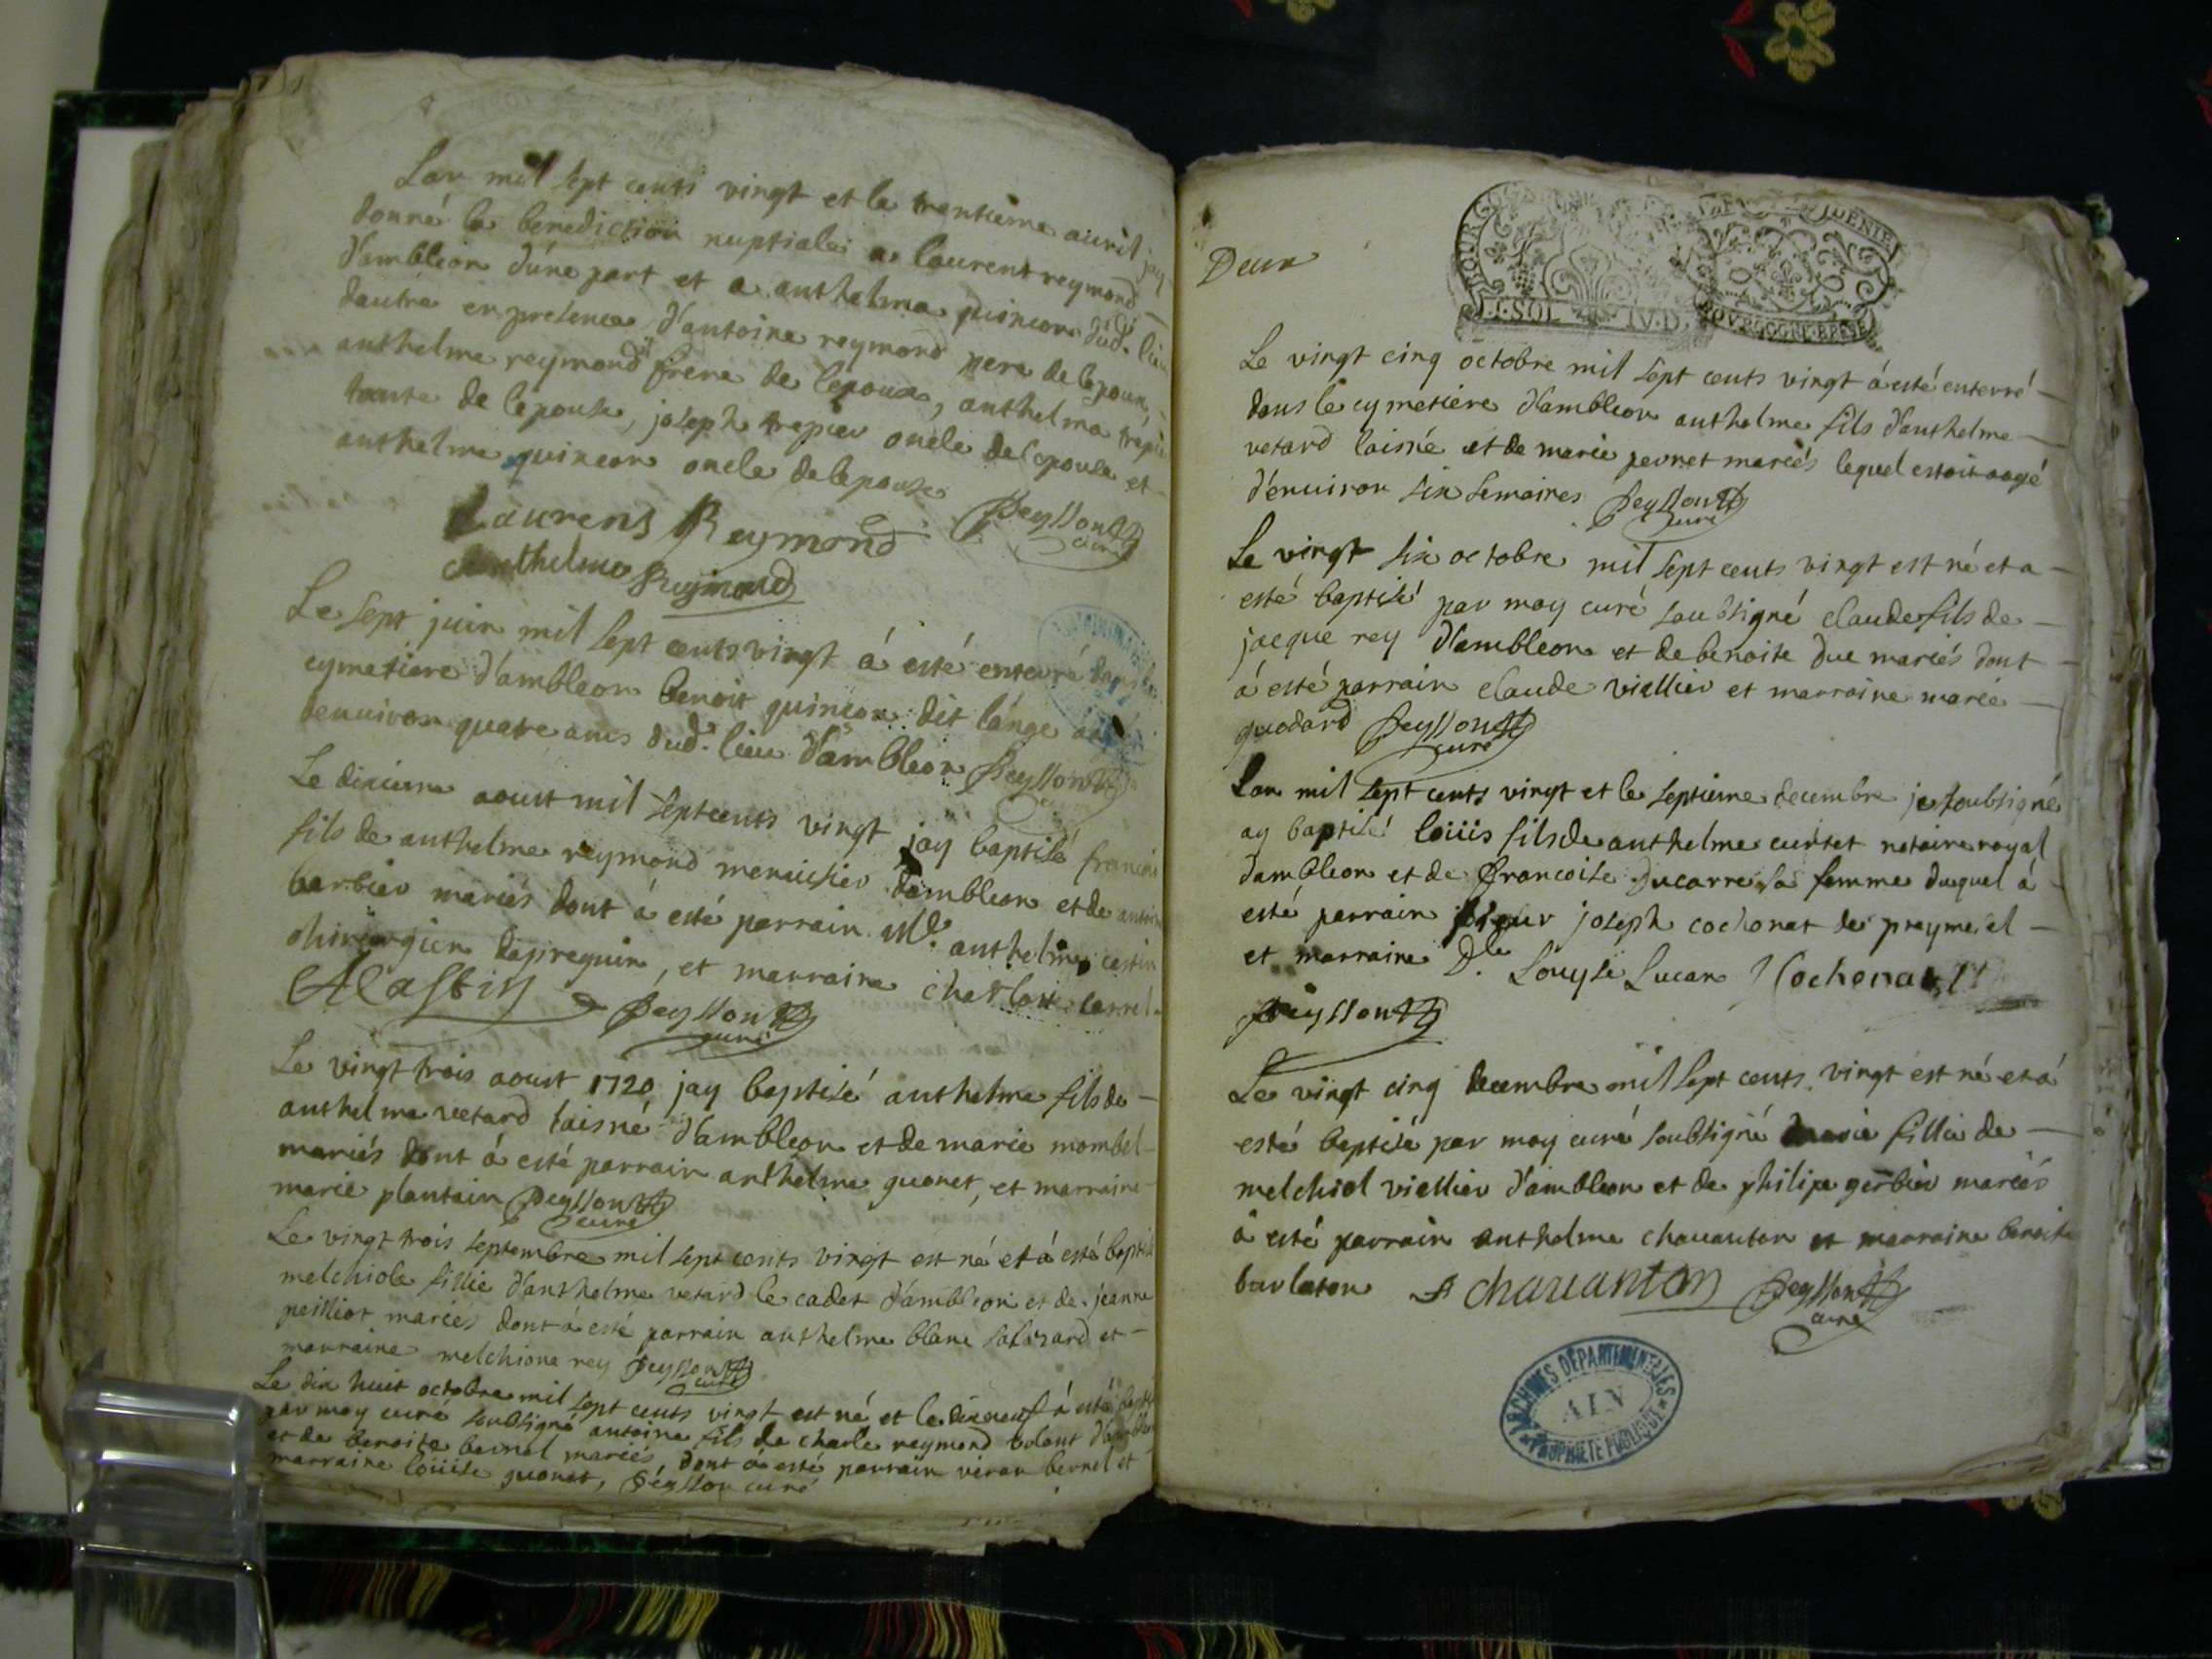 Lan mil sept cents vingt et le trentieme auril jay
donné la benediction nuptiale a laurent reymond
d'ambleon d'une part et a anthelma quincon dud. lieu
dautre en presence d'antoine reymond pere de lepoux,
anthelme reymond frere de lepoux, anthelma trepier
tante de lepouse, joseph trepier oncle de lepouse et
anthelme quincon oncle de lepouse Peysson
curé
Laurens Reymond
Anthelme Reymond
Le sept juin mil sept cents vingt á esté enterré dans le
cymetiere d'ambleon benoit quincon dit lange aagé
denuiron quatre ans dud. lieu d'ambleon Peysson
Le dixieme aoust mil sept cents vingt jay baptisé francois
fils de anthelme reymond menuisier dambleon et de
barbier mariés dont á esté parrain Me. anthelme castin
chirurgien dapregnin, et marraine charlote carrel
ACastin Peysson
curé
Le vingt trois aoust 1720 jay baptisé anthelme fils de
anthelme vetard laisné d'ambleon et de marie mombel
mariés dont á esté parrain anthelme guonet, et marraine
marie plantain Peysson
curé
Le vingt trois septembre mil sept cents vingt est né et á esté baptisé
melchiole fillie d'anthelme vetard le cadet d'ambleon et de jeanne
peilliot mariés dont á esté parrain anthelme blanc et
marraine melchiona rey Peysson
curé
Le dix huit octobre mil sept cents vingt est né et le dixneuf á esté
par moy curé soubsigné antoine fils de charle reymond
et de benoite bernel mariés, dont á esté parrain veran bernel et
marraine loüise guonet, Peysson curé
Deux
I.SOL IV.D.
BOVRGOGNE.BRESSE
Le vingt cinq octobre mil sept cents vingt á esté enterré
dans le cymetiere d'ambleon anthelme fils d'anthelme
vetard laisné et de marie pernet mariés lequel estoit aagé
d'enuiron six semaines Peysson
curé
Le vingt six octobre mil sept cents vingt est né et a
esté baptisé par moy curé soubsigné claude fils de
jacque rey d'ambleon et de benoite duc mariés dont
á esté parrain claude viellier et marraine marie
guodard Peysson
curé
Lan mil sept cents vingt et le septieme decembre je soubsigné
ay baptisé loüis fils de anthelme curtet notaire royal
dambleon et de francoise ducarre sa femme duquel á
esté parrain sieur joseph cochonat de preymeiel
et marraine Dle. Louyse Lucan J Cochonat
Peysson
Le vingt cinq decembre mil sept cents vingt est né et á
esté baptisé par moy curé soubsigné marie fillie de
melchiol viellier d'ambleon et de philipe gerbier mariés
á esté parrain anthelme chauanton et marraine benoite
barlaton A chauanton Peysson
curé
ARCHIVES DÉPARTEMENTALES
AIN
PROPRIÉTÉ PUBLIQUE